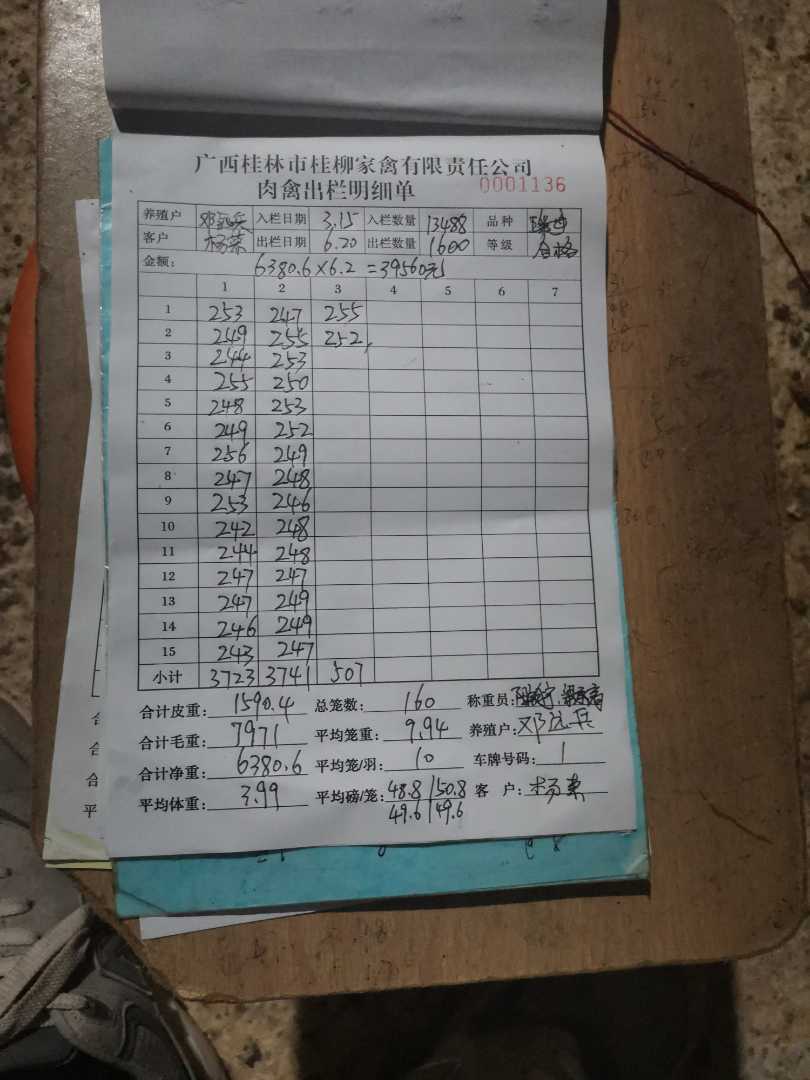 广西桂林市桂柳家禽有限责任公司
肉禽出栏明细单 0001136
养殖户 邓远兵 入栏日期 3.15 入栏数量 13488 品种
客户 杨荣 出栏日期 6.20 出栏数量 1600 等级 合格
金额: 6380.6×6.2=39560元
1 2 3 4 5 6 7
1 253 247 255
2 249 255 252
3 244 253
4 255 250
5 248 253
6 249 252
7 256 249
8 247 248
9 253 246
10 242 248
11 244 248
12 247 247
13 247 249
14 246 249
15 243 247
小计 3723 3741 507
合计皮重: 1590.4 总笼数: 160 称重员:
合计毛重: 7971 平均笼重: 9.94 养殖户: 邓远兵
合计净重: 6380.6 平均笼/羽: 10 车牌号码: 1
平均体重: 3.99 平均磅/笼: 48.8/50.8 客 户: 杨荣
49.6/49.6